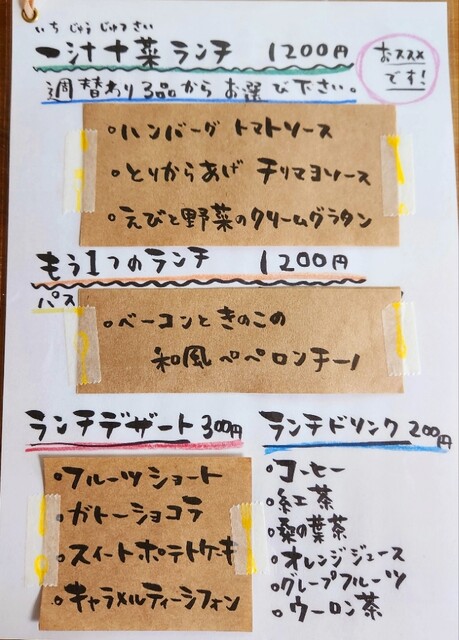 いちじゅうじゅっさい
一汁十菜ランチ 1200円
おススメです!
週替わり3品からお選び下さい。
・ハンバーグ トマトソース
・とりからあげ チリマヨソース
・えびと野菜のクリームグラタン
もう1つのランチ 1200円
パス
・ベーコンときのこの
和風ペペロンチーノ
ランチデザート 300円
・フルーツショート
・ガトーショコラ
・スイートポテトケーキ
・キャラメルティーシフォン
ランチドリンク 200円
・コーヒー
・紅茶
・桑の葉茶
・オレンジジュース
・グレープフルーツ
・ウーロン茶